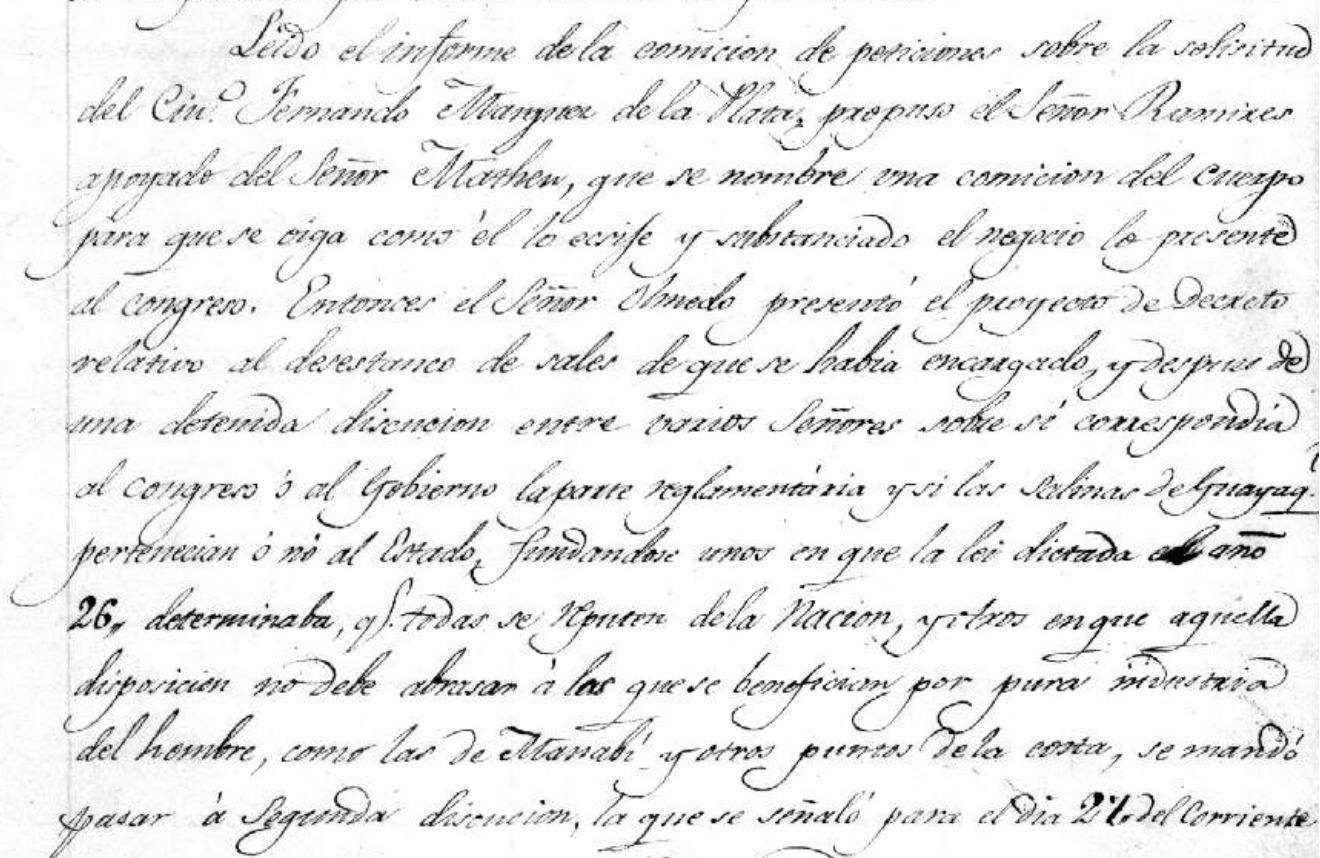 Leido el informe de la comicion de peticiones sobre la solisitud
del Ciu.º Fernando Marquez de la Plata, propuso el Señor Ramires
apoyado del Señor Matheu, que se nombre una comicion del cuerpo
para que se oiga como él lo y substanciado el negocio lo presente
al congreso. Entonces el Señor Olmedo presentó el proyecto de Decreto
relativo al desestanco de sales de que se habia encargado, y despues de
una detenida discucion entre varios Señores sobre sí correspondía
al congreso ó al Gobierno la parte reglamentária y si las Salinas de Guayaq.l
pertenecian ó nó al Estado, fundandose unos en que la lei dictada el año
26,, determinaba, q.e todas se reputen de la Nacion, y otros en que aquella
disposicion no debe abrasar á las que se benefician por pura industria
del hombre, como las de Manabí y otros puntos de la costa, se mandó
pasar á Segunda discucion, la que se señaló para el dia 27. del Corriente